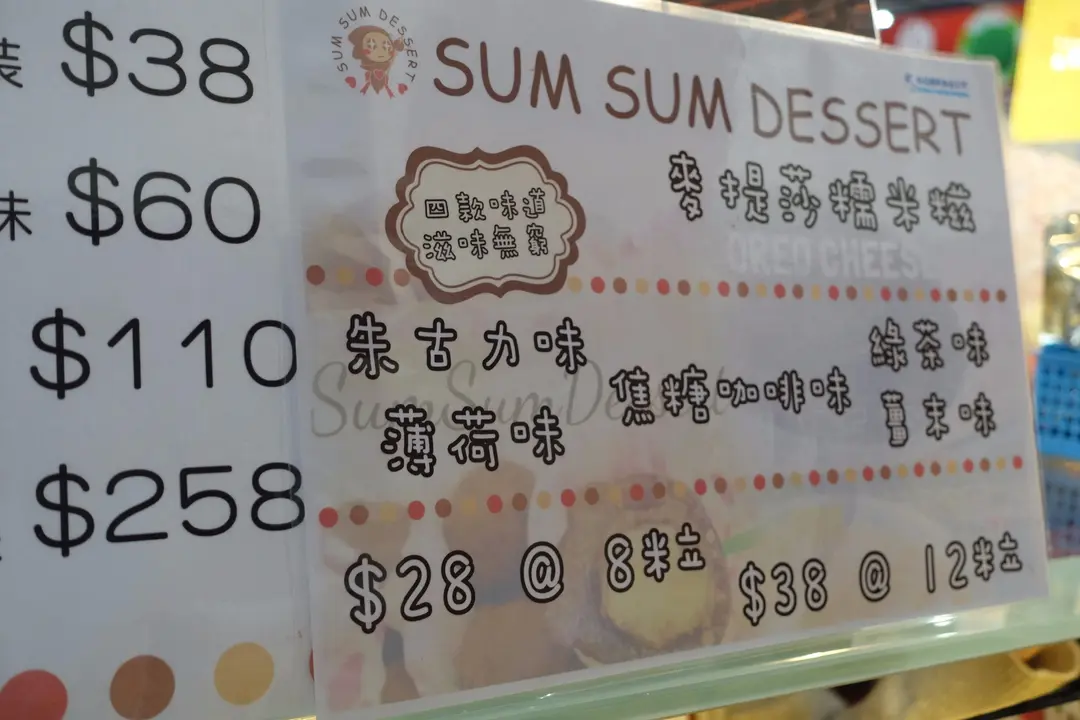 裝 $38
味 $60
$110
$258
SUM SUM DESSERT
SUM SUM DESSERT
四款味道
滋味無窮
麥提莎糯米糍
OREO CHEESE
朱古力味
薄荷味
焦糖咖啡味
綠茶味
薑末味
SumSumDessert
$28 @ 8粒
$38 @ 12粒